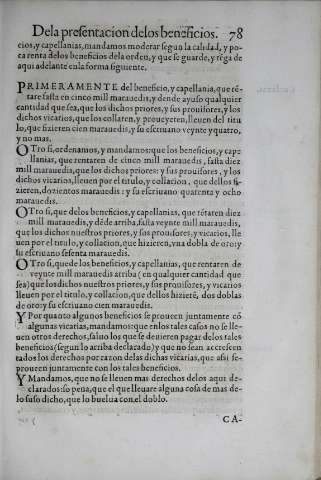 De la presentacion de los beneficios. 78
cios, y capellanias, mandamos moderar segun la calidad, y po-
ca renta de los beneficios de la orden, y que se guarde, y rēga de
aqui adelante en la forma siguiente.
PRIMERAMENTE del beneficio, y capellania, que ré-
tare fasta en cinco mill marauedis, y dende ayuso qualquier
cantidad que sea, que los dichos priores, y sus prouisores, y los
dichos vicarios, que los collaren, y proueyeren, lleuen del titu
lo, que hizieren cien marauedis, y su escriuano veynte y quatro,
y no mas.
OTro si, ordenamos, y mandamos: que los beneficios, y cape
llanias, que rentaren de cinco mill marauedis, fasta diez
mill marauedis, que los dichos priores: y sus prouisores, y los
dichos vicarios, lleuen por el titulo, y collacion, que dellos fi-
zieren, dozientos marauedis: y su escriuano quarenta y ocho
marauedis.
OTro si, que delos beneficios, y capellanias, que rétaren diez
mill marauedis, y dēde arriba, fasta veynte mill marauedis,
que los dichos nuestros priores, y sus prouisores, y vicarios, lle
uen por el titulo, y collacion, que hizieren, vna dobla de oro: y
su escriuano sesenta marauedis.
OTro si, que de los beneficios, y capellanias, que rentaren de
veynte mill marauedis arriba (en qualquier cantidad que
sea) que los dichos nuestros priores, y sus prouisores, y vicarios
lleuen por el titulo, y collacion, que dellos hizieré, dos doblas
de oro: y su escriuano cien marauedis.
Y Por quanto algunos beneficios se prouecen juntamente cō
algunas vicarias, mandamos: que en los tales casos no se lle-
uen otros derechos, saluo los que se deuieren pagar delos tales
beneficios (segun lo arriba declarado) y que no sean acrescen
tados los derechos por razon delas dichas vicarias, que assi se
proueen juntamente con los tales beneficios.
Y Mandamos, que no se lleuen mas derechos delos aqui de-
clarados: so pena, que el que lleuare alguna cosa de mas de-
lo suso dicho, que lo buelua con el doblo.
CA-